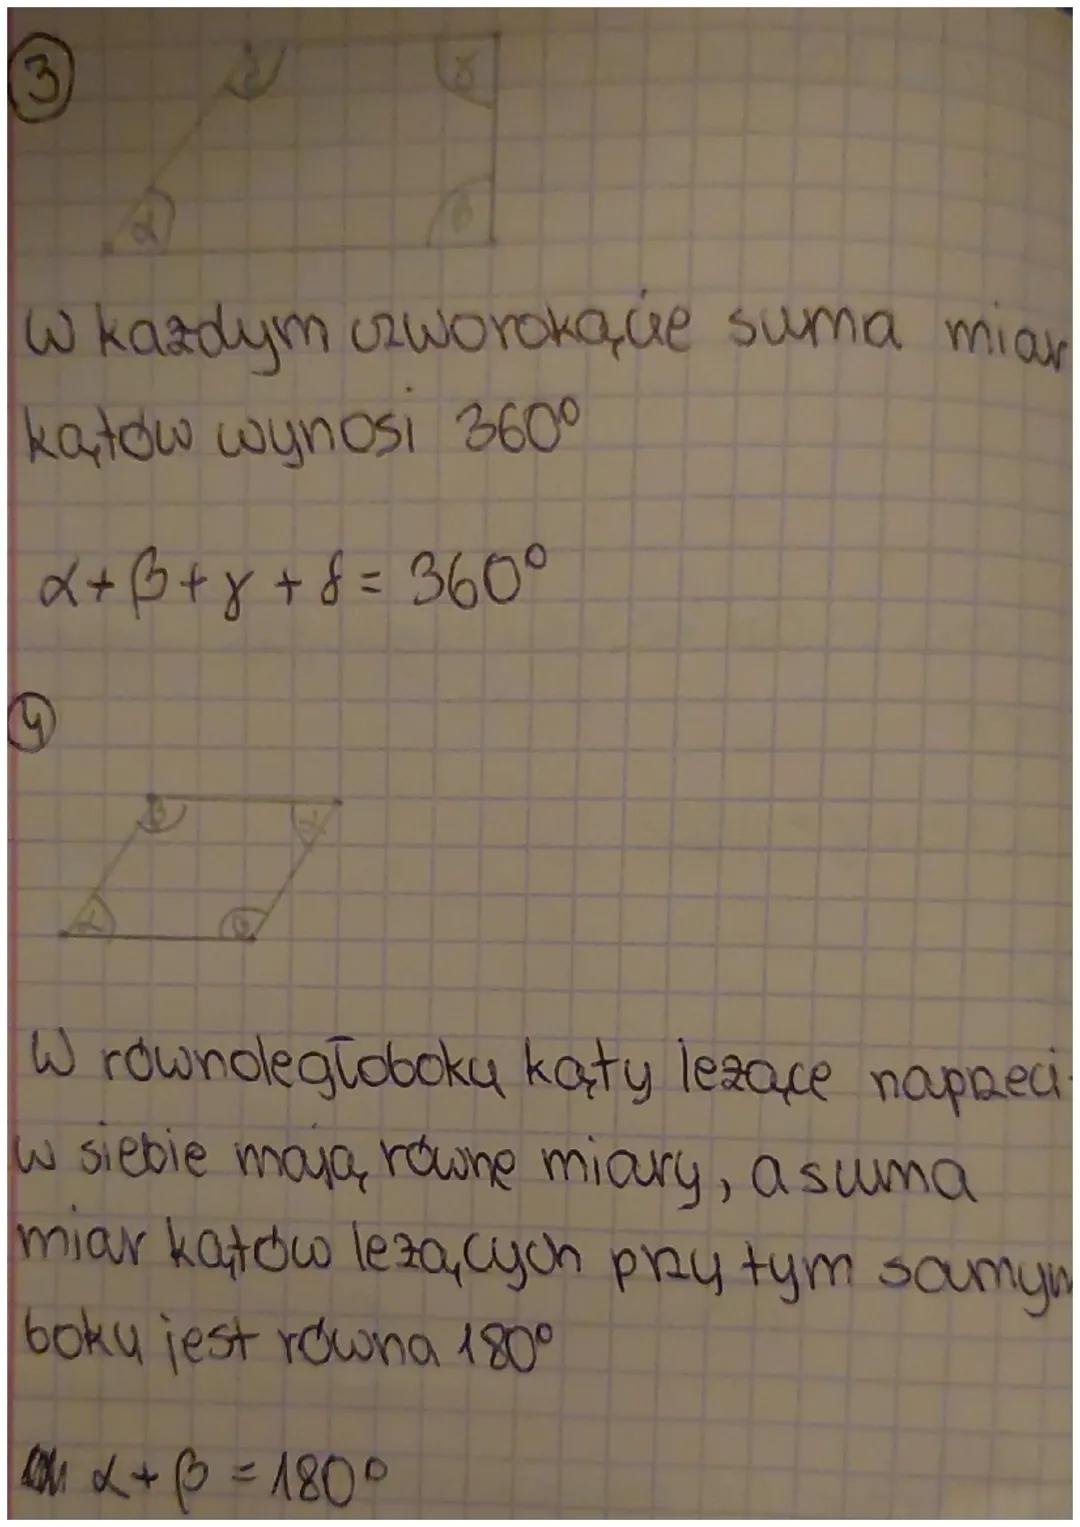 3
δ γ
α β
W każdym czworokącie suma miar
kątów wynosi 360°
α+β+γ+δ= 360°
4
β α
α β
W równoległoboku kąty leżące naprzeci-
w siebie mają równe miary, a suma
miar kątów leżących przy tym samym
boku jest równa 180°
α+β=180°